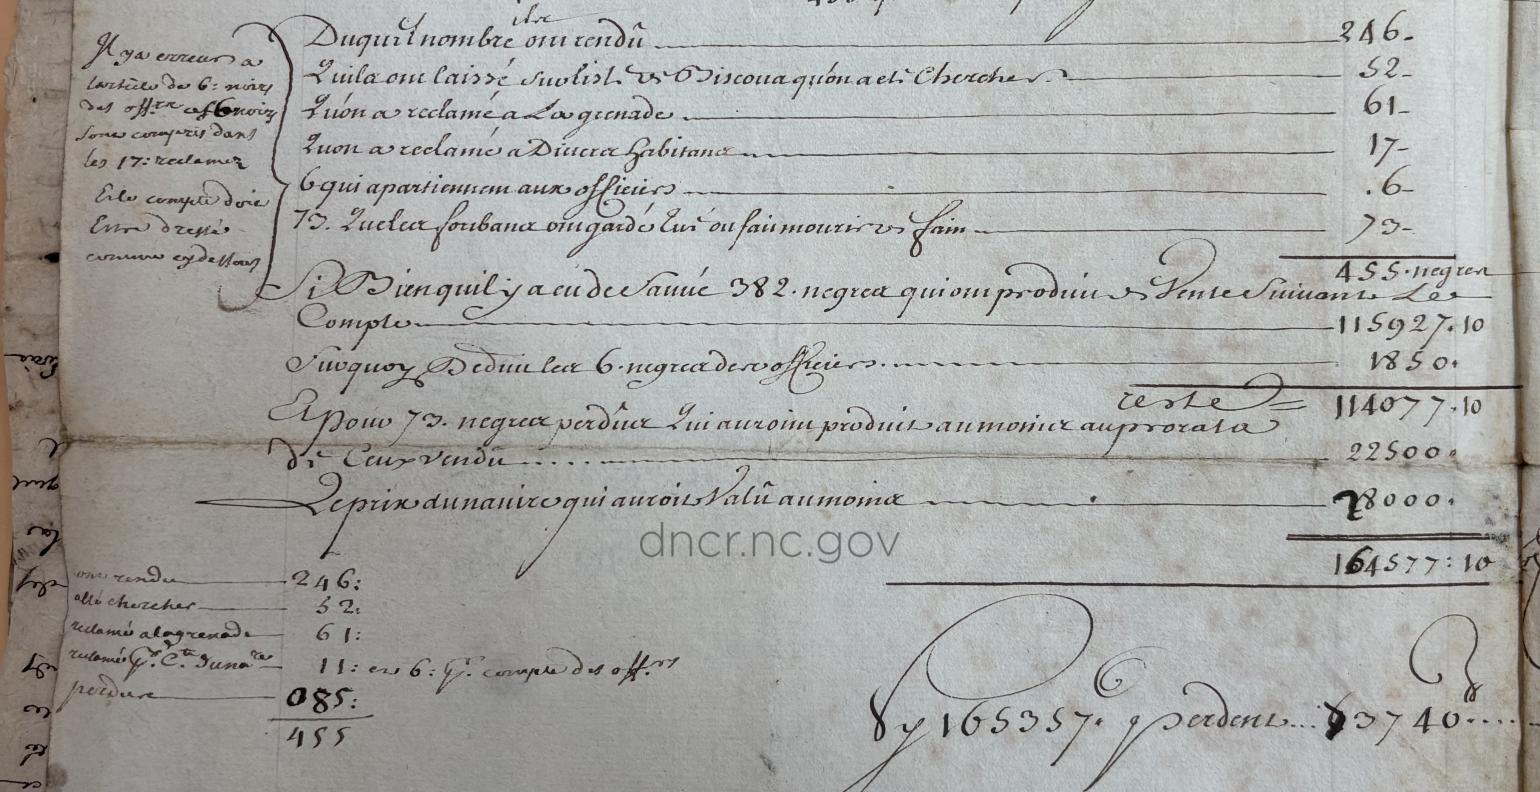 Il y a erreur a
l'article de 6: noirs
des offrs. ces 6 noirs
sont compris dans
les 17: reclamez
Et le compte doit
Estre dressé
comme cy dessous
ils
Duquel nombre ont rendû 246.
Quila ont laissé sur l'isle de Biscoua qu'on a eté Chercher 52
Quon a reclamé a La grenade 61
Quon a reclamé a Divers habitans 17
6 qui apartiennent aux officiers .6
73. Que les forbans ont gardé tué ou fait mourir de faim 73
455. negres
Si Bien quil y a eu de Sauvé 382. negres qui ont produit de Vente Suivant Les
Comptes 115927.10
Surquoy Deduit les 6. negres des officiers 1850.
reste = 114077.10
Et Pour 73. negres perdus Qui auroint produit au moins au prorata
de Ceux vendu 22500.
Le prix du navire qui auroit Valû au moins 28000.
164577:10
dncr.nc.gov
ont rendu 246:
allé chercher 52:
reclamés a la grenade 61:
reclamés pr. Cte. du nare 11: et 6: pr. compte des offrs
perdus 085:
455
165357. perdent... 3740